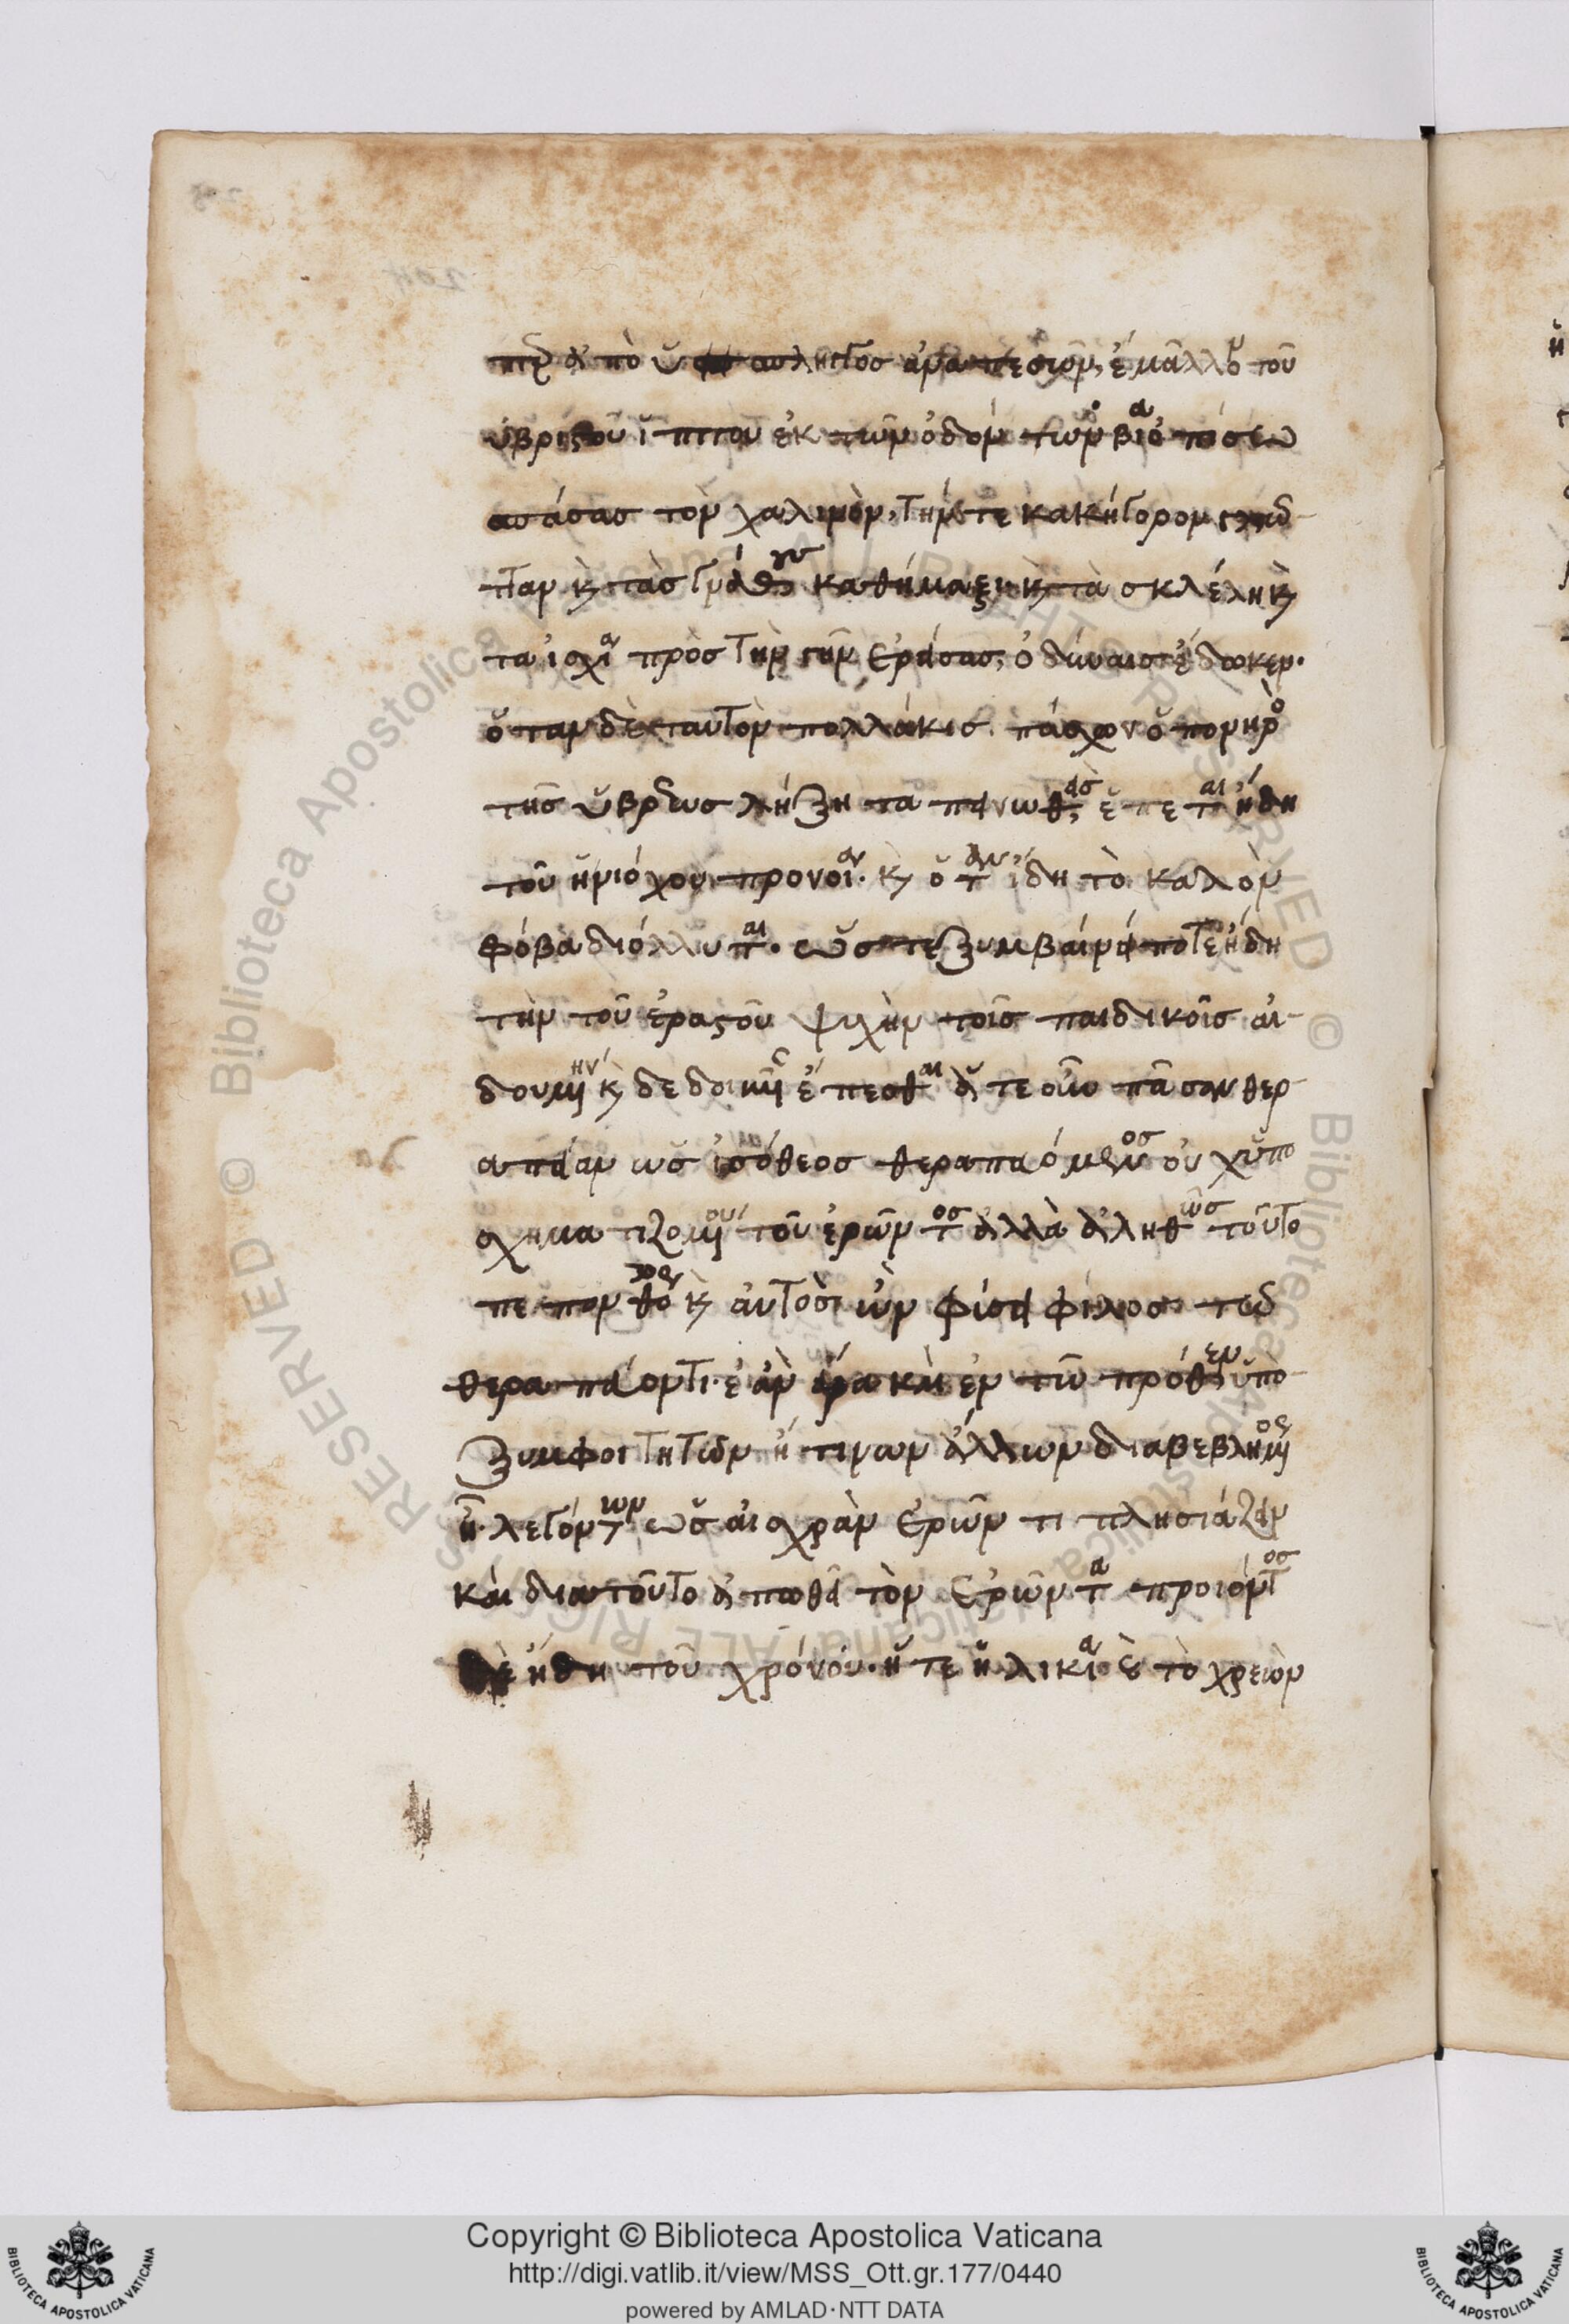 ὥσπερ ἀπὸ ὕσπληγος ἀναπεσὼν, ἔτι μᾶλλον τοῦ
ὑβριστοῦ ἵππου ἐκ τῶν ὀδόντων βίᾳ ὀπίσω
σπάσας τὸν χαλινὸν, τήν τε κακήγορον γλῶτ
ταν καὶ τὰς γνάθους καθήμαξε καὶ τὰ σκέλη καὶ
τὰ ἰσχία πρὸς τὴν γῆν ἐρείσας, ὀδύναις ἔδωκεν.
ὅταν δὲ ταυτὸν πολλάκις πάσχων ὁ πονηρὸς
τῆς ὕβρεως λήξῃ ταπεινωθεὶς, ἕπεται ἤδη
τοῦ ἡνιόχου προνοίᾳ. καὶ ὅταν ἴδῃ τὸν καλὸν
φόβῳ διόλλυται. ὥστε ξυμβαίνει ποτὲ ἤδη
τὴν τοῦ ἐραστοῦ ψυχὴν τοῖς παιδικοῖς αἰ
δουμένην καὶ δεδοικυῖαν ἕπεσθαι ἅτε οὖν πᾶσαν θερ
απείαν ὡς ἰσόθεος θεραπευόμενος οὐχ ὑπὸ
σχηματιζομένου τοῦ ἐρῶντος ἀλλὰ ἀληθῶς τοῦτο
πεπονθότος καὶ αὐτὸς ὢν φύσει φίλος τῷ
θεραπεύοντι. ἐὰν ἄρα καὶ ἐν τῷ πρόσθεν ὑπὸ
ξυμφοιτητῶν ἤ τινων ἄλλων διαβεβλημένος
ᾖ. λεγόντων ὡς αἰσχρὸν ἐρῶντι πλησιάζειν
καὶ διὰ τοῦτο ἀπωθεῖ τὸν ἐρῶντα προιόντος
δὲ ἤδη τοῦ χρόνου. ἥ τε ἡλικία καὶ τὸ χρεὼν
Copyright © Biblioteca Apostolica Vaticana
http://digi.vatlib.it/view/MSS_Ott.gr.177/0440
powered by AMLAD·NTT DATA